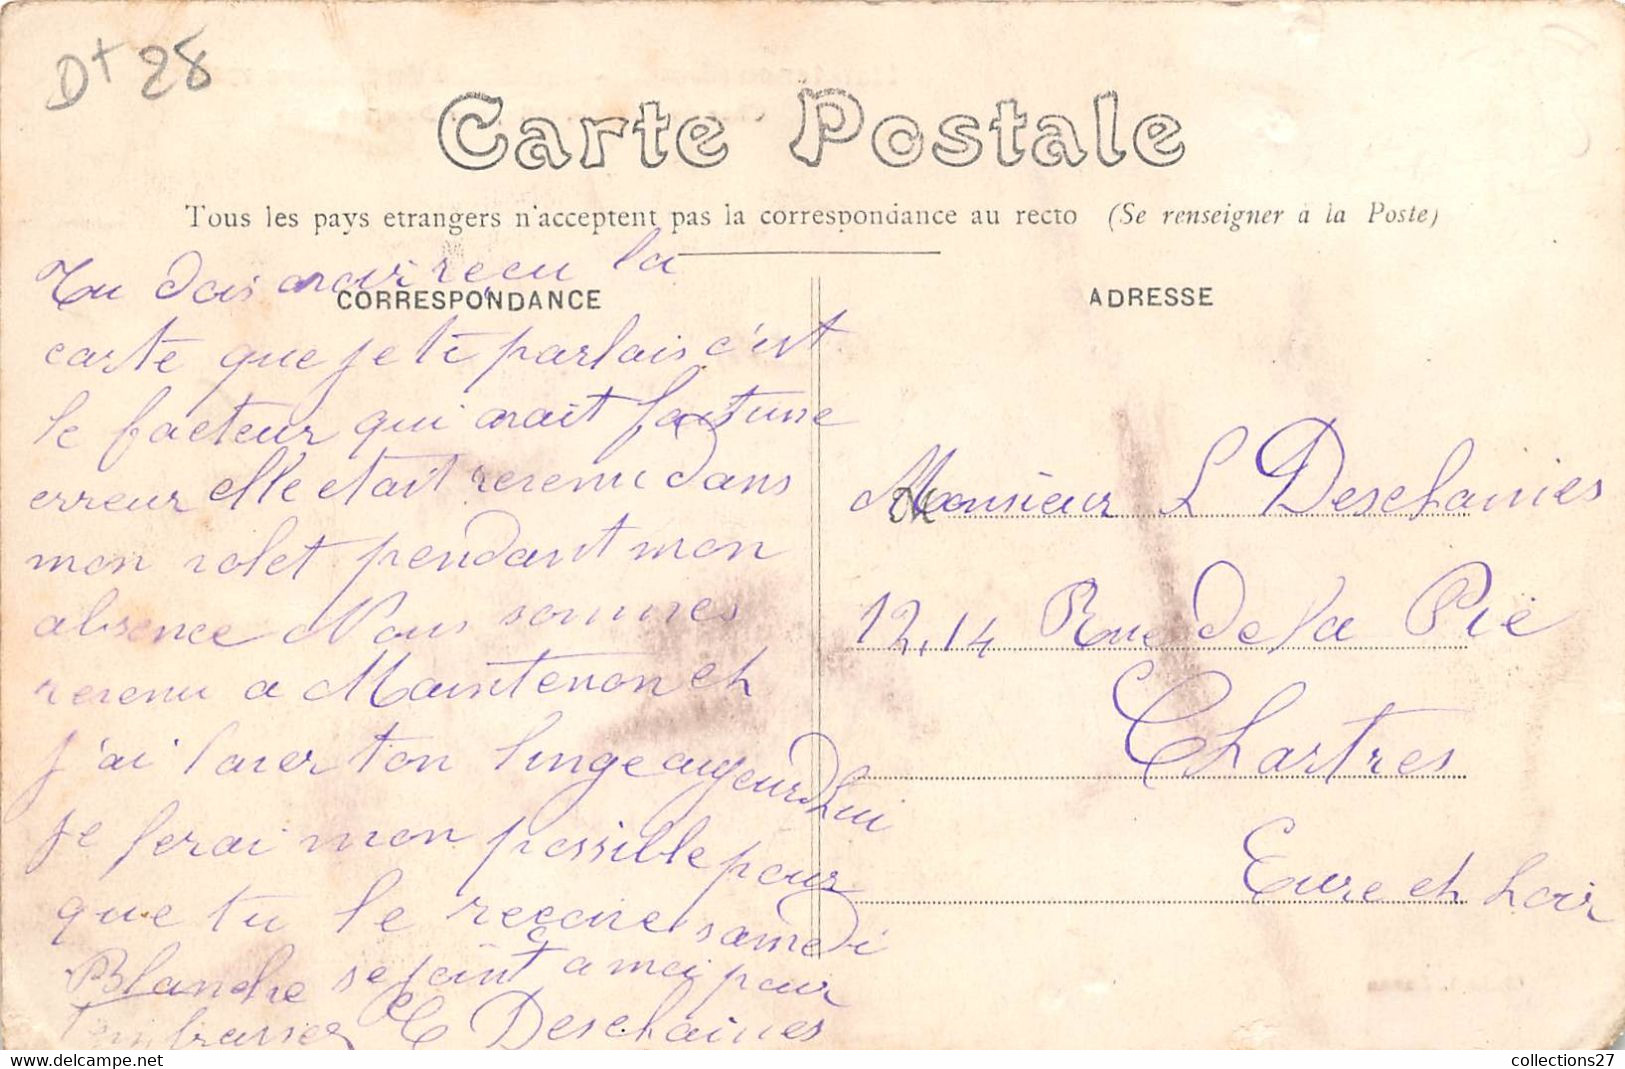 Dt 28
Carte Postale
Tous les pays etrangers n'acceptent pas la correspondance au recto (Se renseigner à la Poste)
CORRESPONDANCE
Tu dois avoir reçu la
carte que je te parlais c'est
le facteur qui avait fait une
erreur elle etait revenu dans
mon volet pendant mon
absence Nous sommes
revenu a Maintenon et
j'ai laver ton linge aujourdhui
je ferai mon possible pour
que tu le reçoive samedi
Blanche se joint a moi pour
t'embrasser C Deschaines
ADRESSE
Monsieur L Deschaines
12.14 Rue de la Pie
Chartres
Eure et Loir
collections27